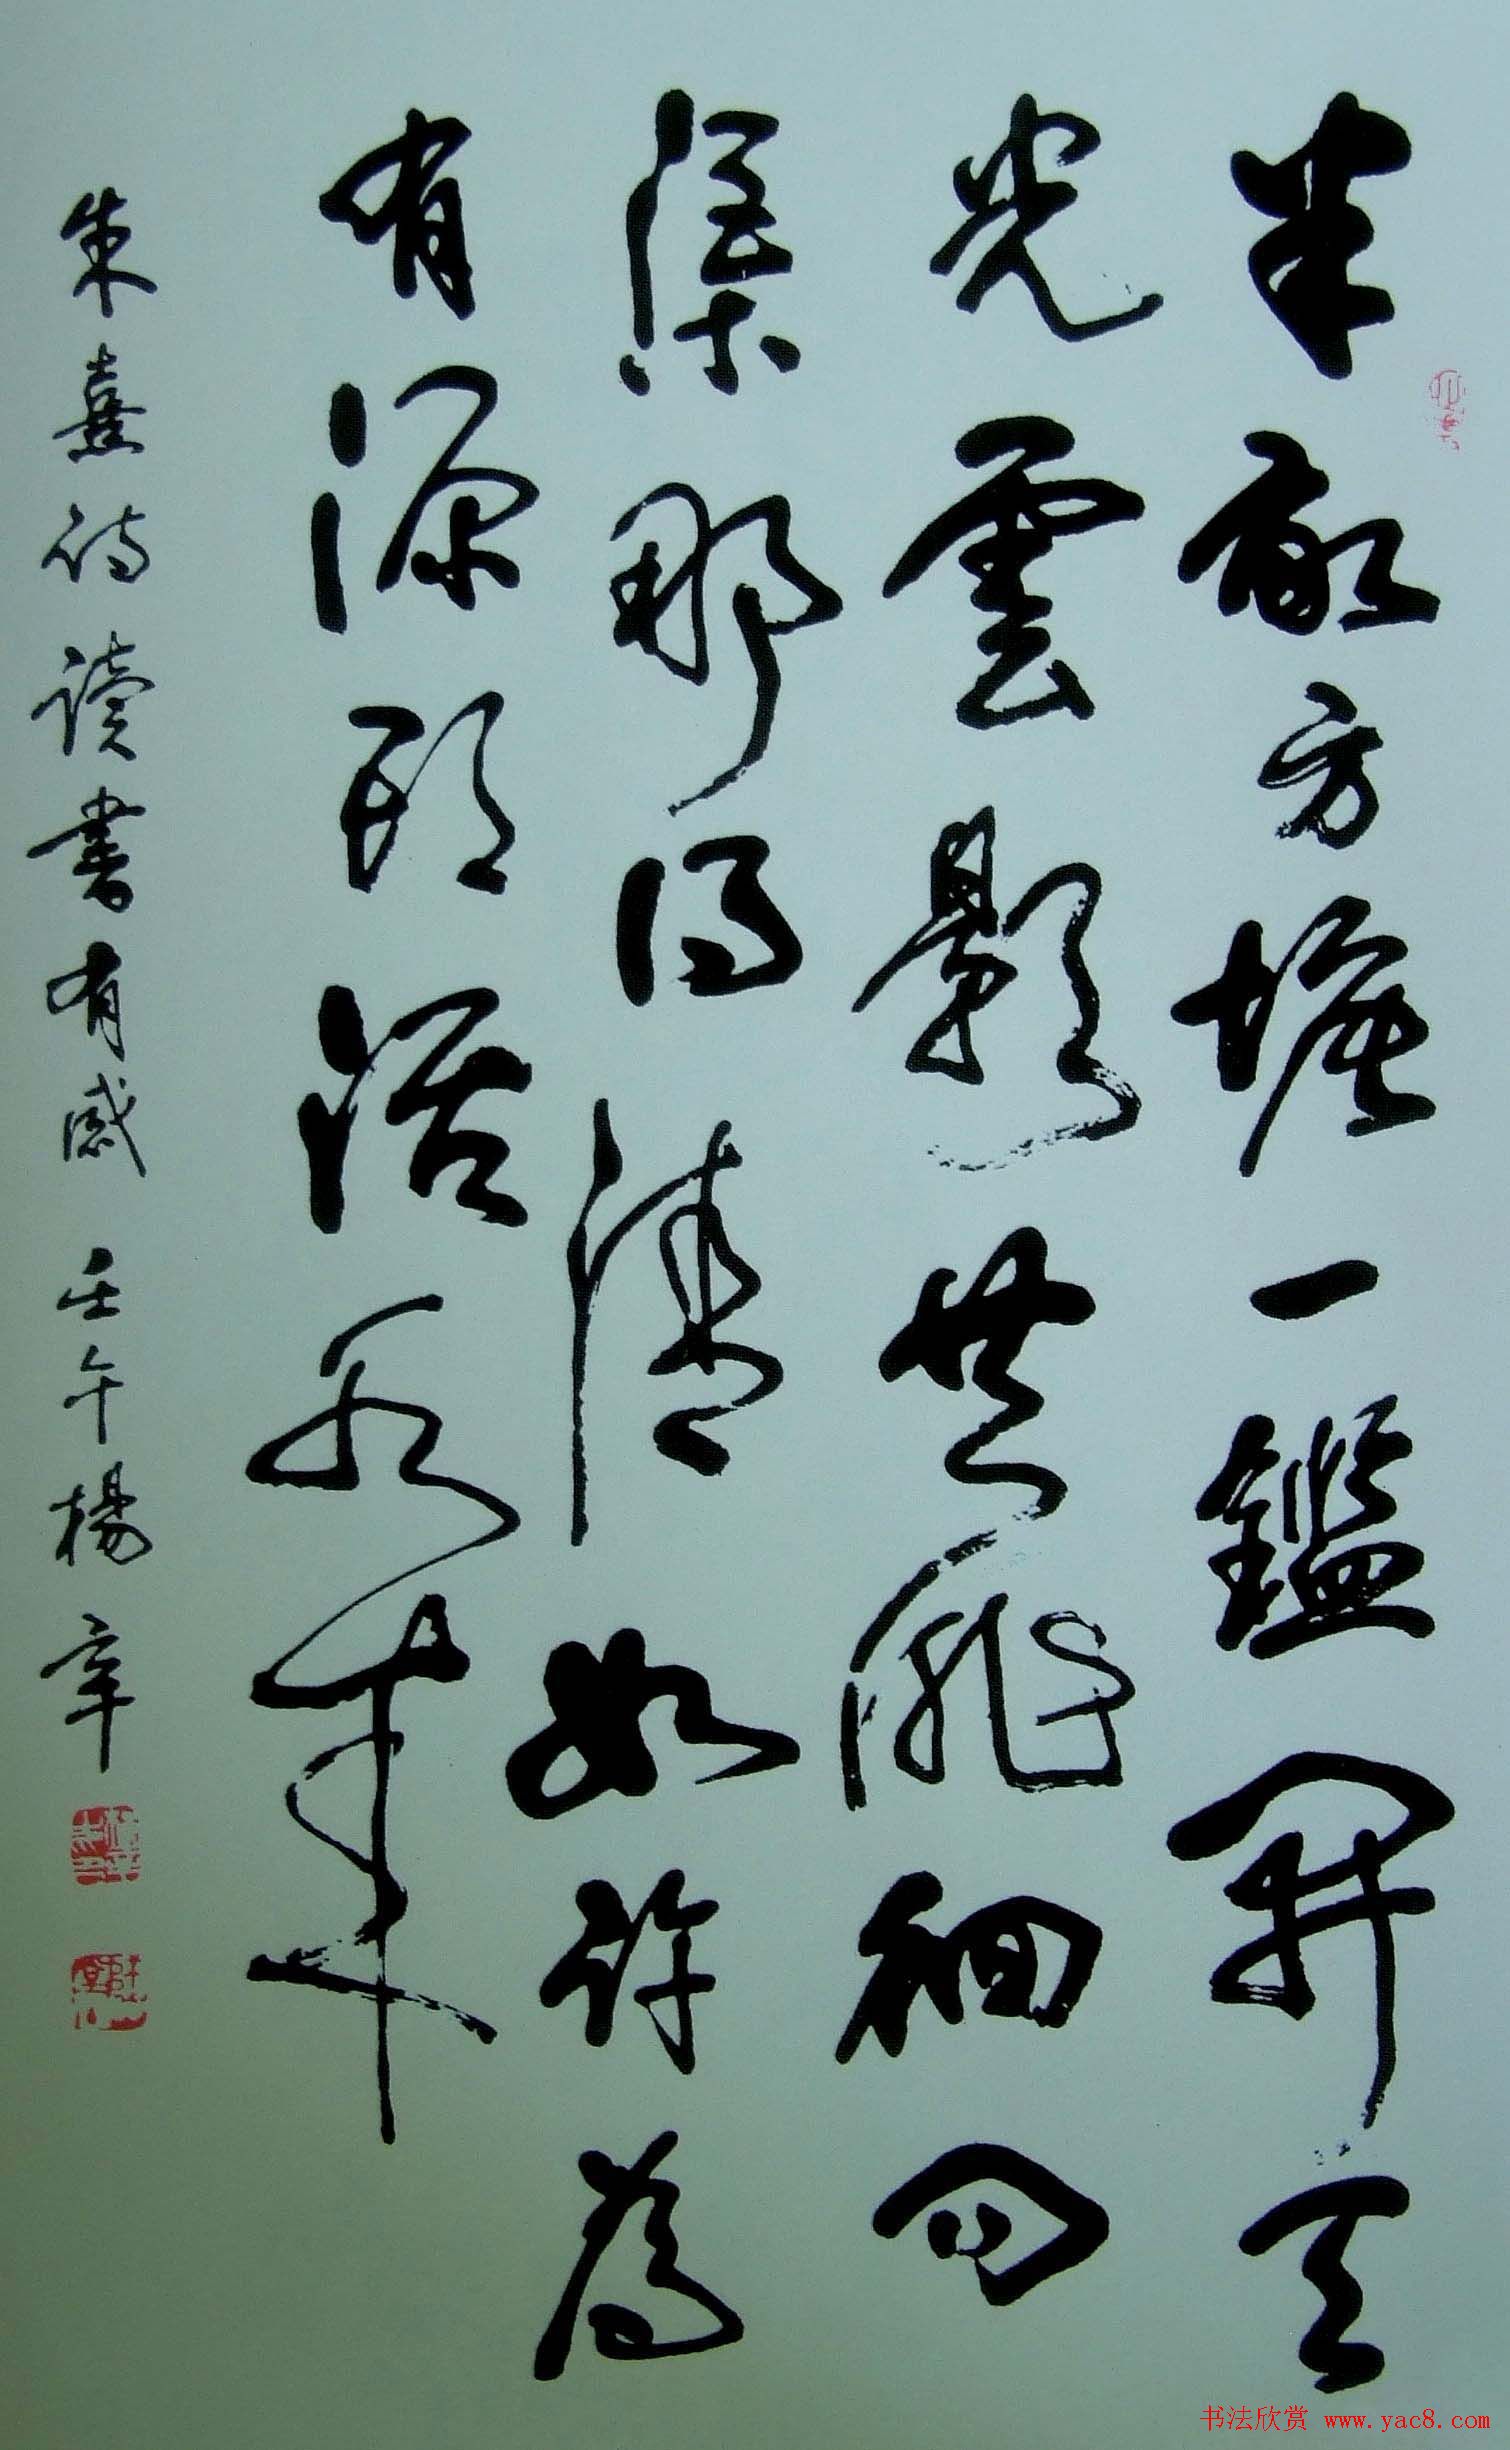 半畝方塘一鑑開天
光雲影共徘徊問
渠那得清如許為
有源頭活水來
朱熹詩讀書有感 壬午楊辛
书法欣赏 www.yac8.com